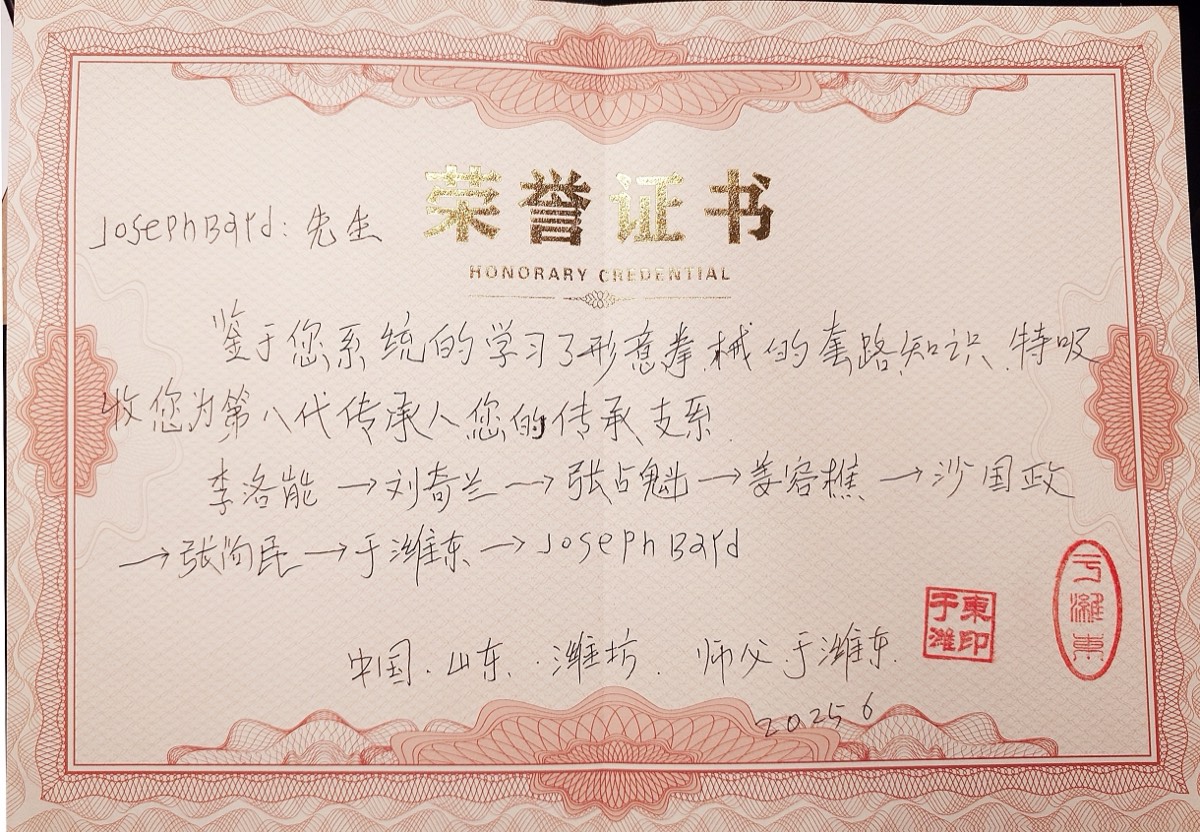 荣誉证书
HONORARY CREDENTIAL
Joseph Bard: 先生
鉴于您系统的学习了形意拳.械的套路知识.特吸
收您为第八代传承人您的传承支系.
李洛能→刘奇兰→张占魁→姜容樵→沙国政
→张向民→于潍东→Joseph Bard
中国.山东.潍坊. 师父.于潍东.
2025 6
于潍東印
于濰東